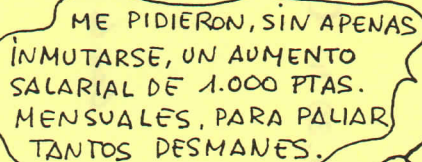 ME PIDIERON, SIN APENAS
INMUTARSE, UN AUMENTO
SALARIAL DE 1.000 PTAS.
MENSUALES, PARA PALIAR
TANTOS DESMANES.